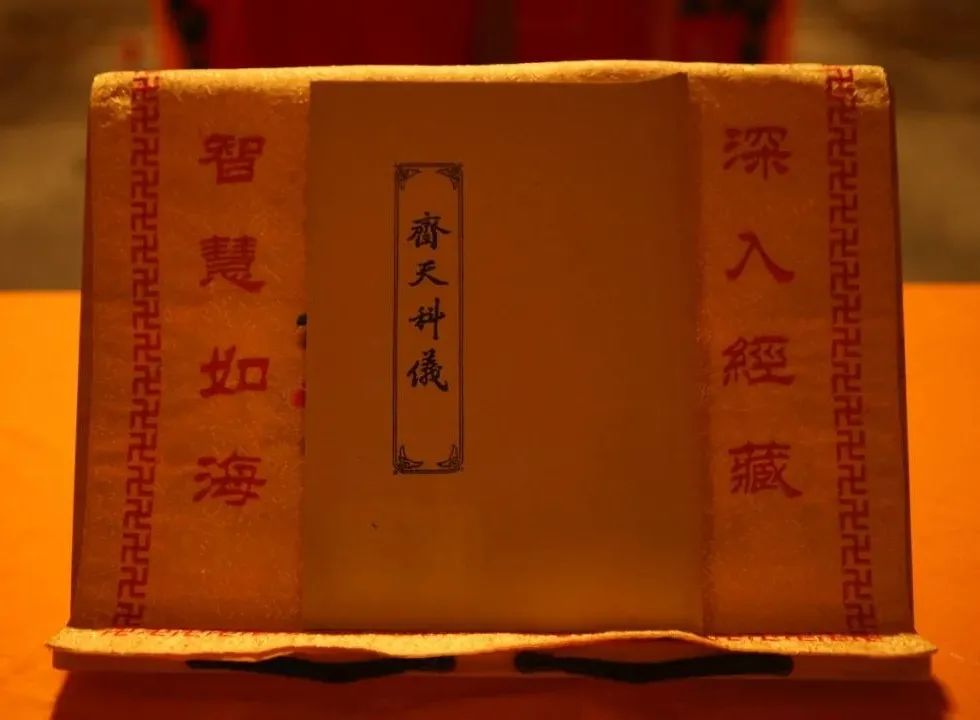 深入經藏
齋天科儀
智慧如海